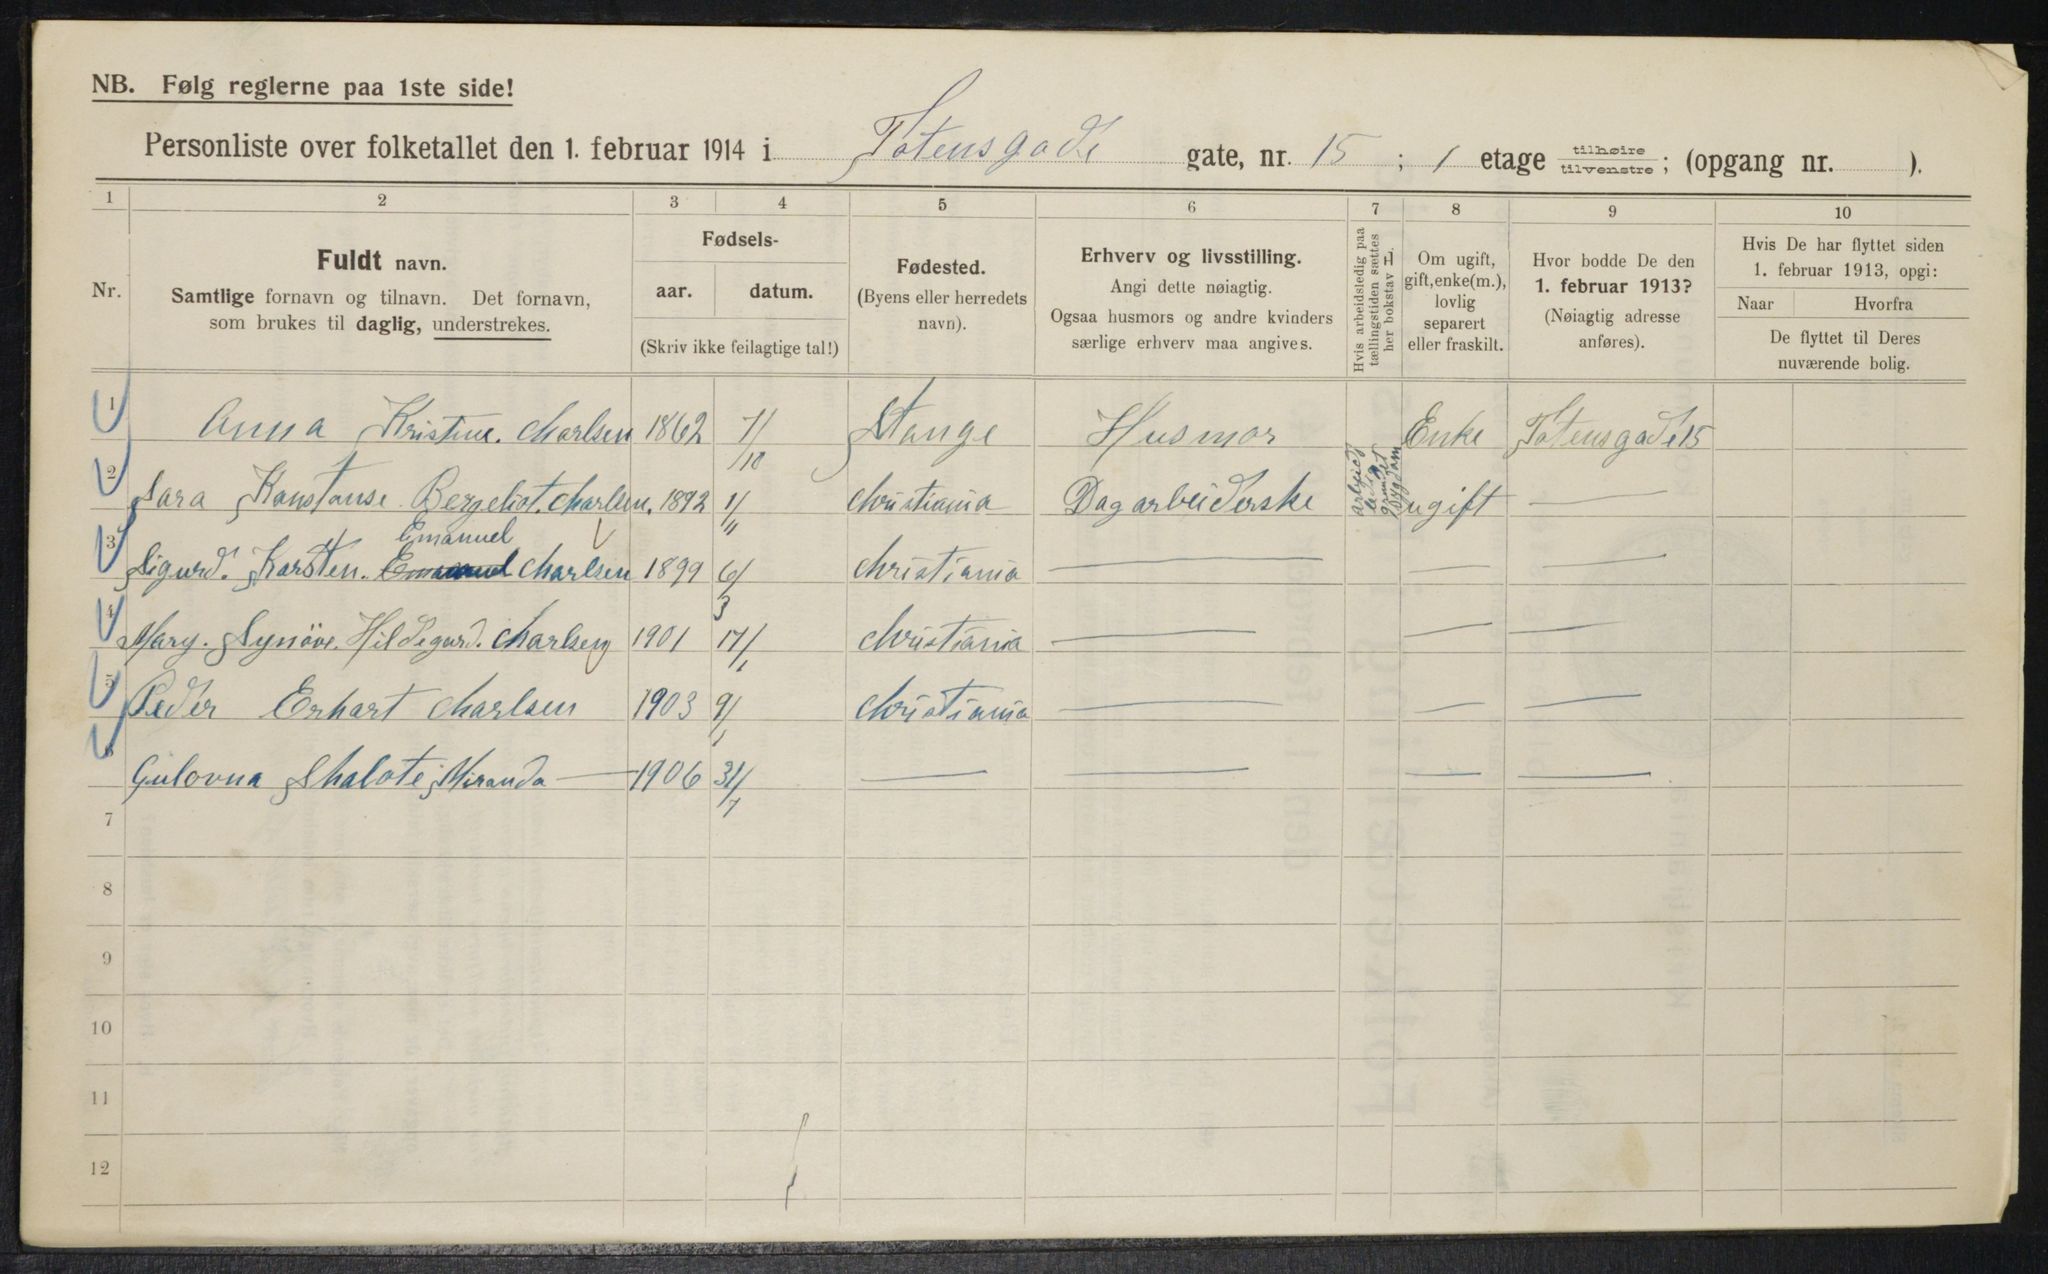 NB. Følg reglerne paa 1ste side!
Personliste over folketallet den 1. februar 1914 i Totensgade gate, nr. 15 ; 1 etage tilhøire tilvenstre ; (opgang nr. ).
1 2 3 4 5 6 7 8 9 10
Nr.
Fuldt navn.
Samtlige fornavn og tilnavn. Det fornavn,
som brukes til daglig, understrekes.
Fødsels-
aar. datum.
(Skriv ikke feilagtige tal!)
Fødested.
(Byens eller herredets
navn).
Erhverv og livsstilling.
Angi dette nøiagtig.
Ogsaa husmors og andre kvinders
særlige erhverv maa angives.
Hvis arbeidsledig paa
tællingstiden sættes
her bokstav L.
Om ugift,
gift, enke(m.),
lovlig
separert
eller fraskilt.
Hvor bodde De den
1. februar 1913?
(Nøiagtig adresse
anføres).
Hvis De har flyttet siden
1. februar 1913, opgi:
Naar Hvorfra
De flyttet til Deres
nuværende bolig.
1 Anna Kristine. Charlsen 1862 7/10 Stange Husmor Enke Totensgade 15
2 Sara Konstanse Bergeliot. Charlsen. 1892 1/11 Christiania Dagarbeiderske ugift —
Emanuel
3 Sigurd. Karsten. Emanuel Charlsen 1899 6/3 Christiania — — —
4 Mary. Synöve. Hildegard. Charlsen 1901 17/1 Christiania — — —
5 Peder Erhart Charlsen 1903 9/1 Christiania — — —
6 Gulovna Shalote Miranda — 1906 31/7 — — — —
7
8
9
10
11
12